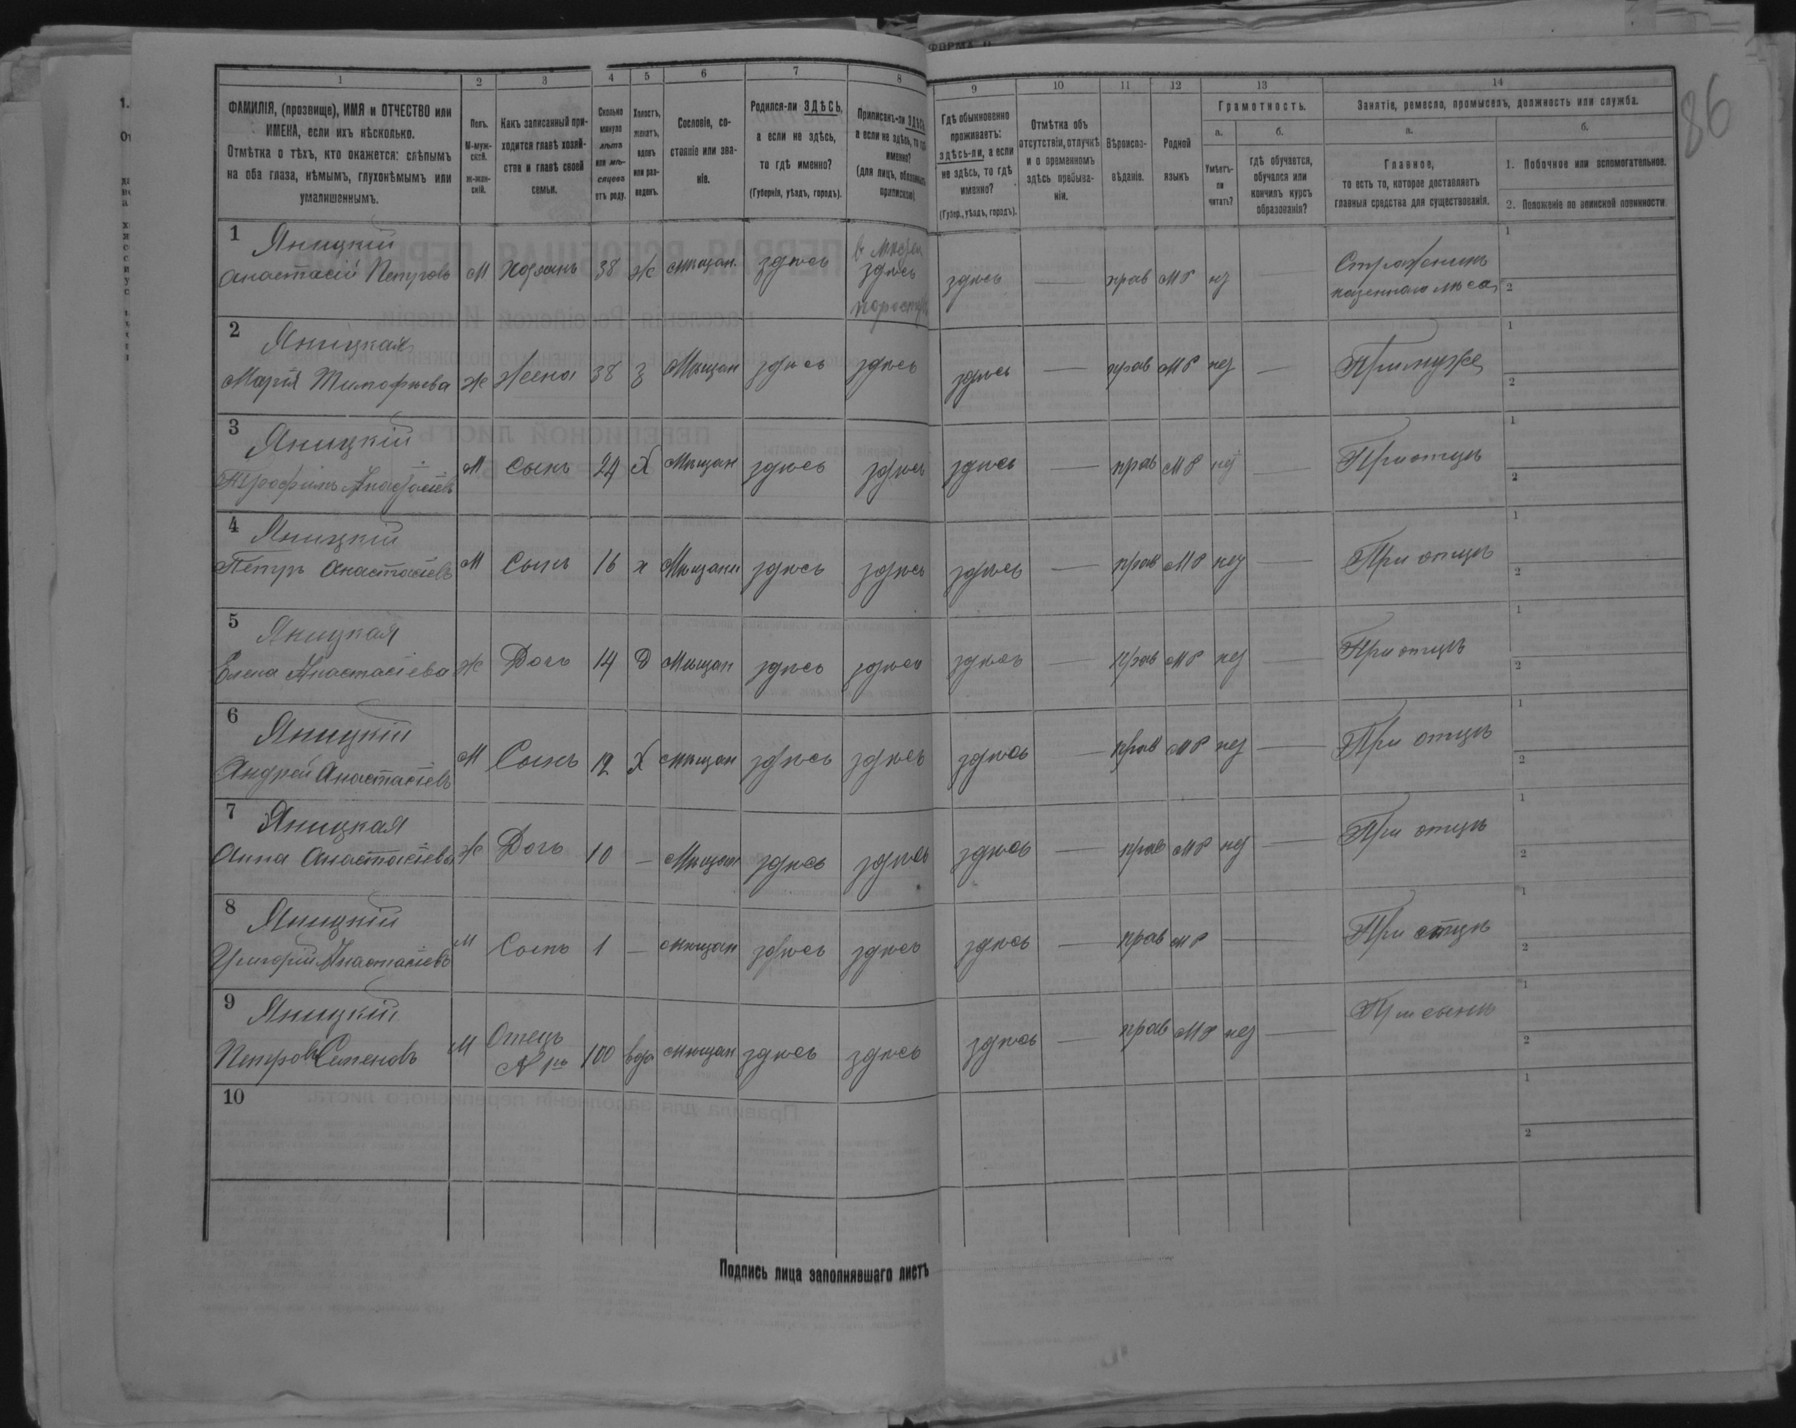 ФОРМА
86
1 2 3 4 5 6 7 8 9 10 11 12 13 14
ФАМИЛІЯ, (прозвище), ИМЯ и ОТЧЕСТВО или
ИМЕНА, если ихъ нѣсколько.
Отмѣтка о тѣхъ, кто окажется: слѣпымъ
на оба глаза, нѣмымъ, глухонѣмымъ или
умалишеннымъ.
Полъ.
М-муж-
ской.
Ж-жен-
скій.
Какъ записанный при-
ходится главѣ хозяй-
ства и главѣ своей
семьи.
Сколько
минуло
лѣтъ
или мѣ-
сяцевъ
отъ роду.
Холостъ,
женатъ,
вдовъ
или раз-
веденъ.
Сословіе, со-
стояніе или зва-
ніе.
Родился-ли ЗДѢСЬ,
а если не здѣсь,
то гдѣ именно?
(Губернія, уѣздъ, городъ).
Приписанъ-ли ЗДѢСЬ
а если не здѣсь, то гдѣ
именно?
(для лицъ, обязанныхъ
припиской).
Гдѣ обыкновенно
проживаетъ:
здѣсь-ли, а если
не здѣсь, то гдѣ
именно?
(Губер., уѣздъ, городъ).
Отмѣтка объ
отсутствіи, отлучкѣ
и о временномъ
здѣсь пребыва-
ніи.
Вѣроиспо-
вѣданіе.
Родной
языкъ
Грамотность.
а.
Умѣетъ-
ли
читать?
б.
гдѣ обучается,
обучался или
кончилъ курсъ
образованія?
Занятіе, ремесло, промыселъ, должность или служба.
а.
Главное,
то есть то, которое доставляетъ
главныя средства для существованія.
б.
1. Побочное или вспомогательное.
2. Положеніе по воинской повинности.
1 Яницкій
Анастасій Петровъ М Хозяинъ 38 Ж мѣщан. здѣсь здѣсь здѣсь — прав МР нѣ — Стражникъ
казеннаго лѣса 1 2
2 Яницкая
Марія Тимофѣева Ж Жена 38 З Мѣщан здѣсь здѣсь здѣсь — прав МР нѣ — При мужѣ 1 2
3 Яницкій
Трофимъ Анастасіевъ М Сынъ 24 Х Мѣщан здѣсь здѣсь здѣсь — прав МР нѣ — При отцѣ 1 2
4 Яницкій
Петръ Анастасіевъ М Сынъ 16 х Мѣщани здѣсь здѣсь здѣсь — прав МР нѣ — При отцѣ 1 2
5 Яницкая
Елена Анастасіева Ж Дочь 14 Д Мѣщан здѣсь здѣсь здѣсь — прав МР нѣ — При отцѣ 1 2
6 Яницкій
Андрей Анастасіевъ М Сынъ 12 Х Мѣщан здѣсь здѣсь здѣсь — прав МР нѣ — При отцѣ 1 2
7 Яницкая
Анна Анастасіева Ж Дочь 10 — Мѣщан здѣсь здѣсь здѣсь — прав МР нѣ — При отцѣ 1 2
8 Яницкій
Григорій Анастасіевъ М Сынъ 1 — мѣщан здѣсь здѣсь здѣсь — прав МР — При отцѣ 1 2
9 Яницкій
Петровъ Семеновъ М Отецъ
№ 1го 100 вдо мѣщан здѣсь здѣсь здѣсь — прав МР нѣ — При сынѣ 1 2
10 1 2
Подпись лица заполнявшаго листъ